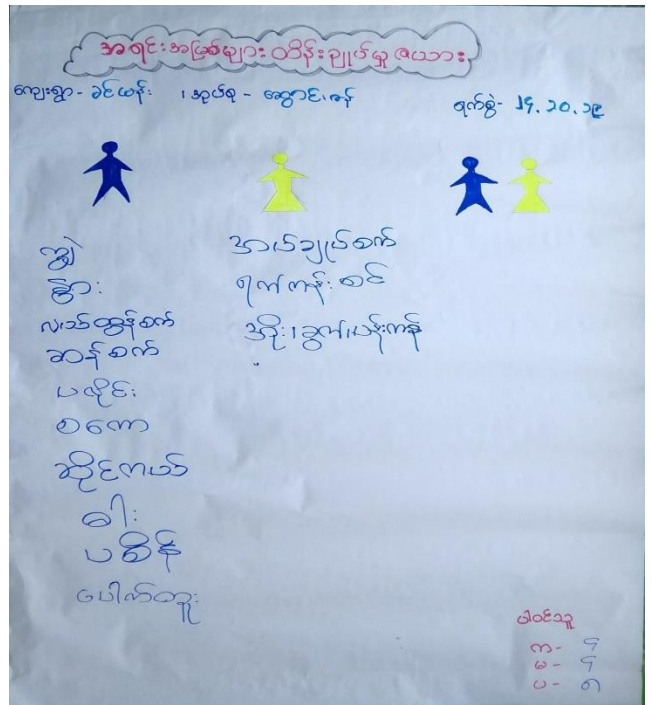 အရင်းအမြစ်များ ထိန်းချုပ်မှု ဇယား
ကျေးရွာ - ခင်ယန်း ၊ အုပ်စု - ဆွောင်းဇန်
ရက်စွဲ -
ကျွဲ
နွား
လယ်ထွန်စက်
ဆန်စက်
ပဇိုင်း
စကော
ဆိုင်ကယ်
ဓါး
ပစိန်
ပေါက်တူး
အပ်ချုပ်စက်
ရက်ကန်းစင်
အိုး၊ ခွက်ပန်းကန်
ပါဝင်သူ
က -
မ -
ပ -